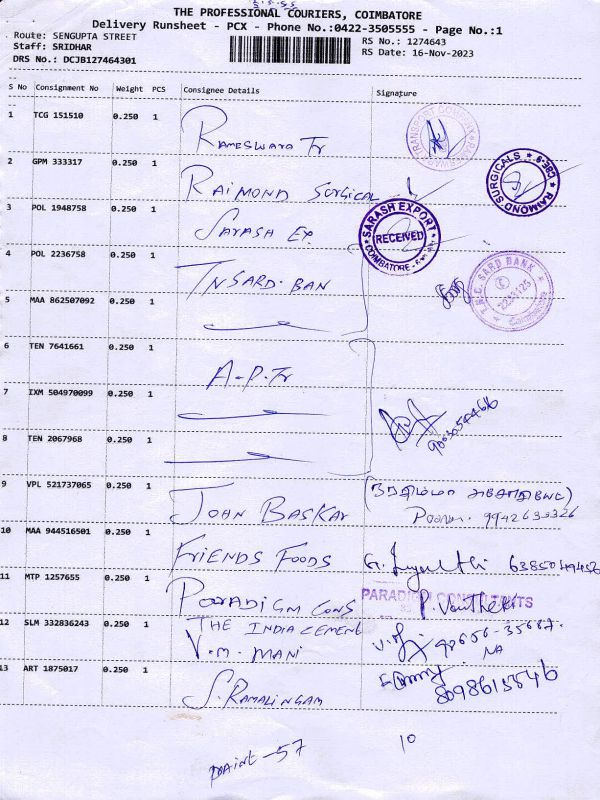 THE PROFESSIONAL COURIERS, COIMBATORE
Delivery Runsheet - PCX - Phone No.:0422-3505555 - Page No.:1
Route: SENGUPTA STREET
RS No.: 1274643
Staff: SRIDHAR
RS Date: 16-Nov-2023
DRS No.: DCJB127464301
S No Consignment No Weight PCS Consignee Details Signature
1 TCG 151510 0.250 1 RAMESWARA Tr
2 GPM 333317 0.250 1 RAIMOND SURGICAL
RAIMOND SURGICALS CBE-9
3 POL 1948758 0.250 1 SARASH EX.
SARASH EXPORT RECEIVED COIMBATORE
4 POL 2236758 0.250 1 TNSARD. BAN
T.N.C. SARD BANK
5 MAA 862507092 0.250 1
6 TEN 7641661 0.250 1 A-P.Tr
7 IXM 504970099 0.250 1
8 TEN 2067968 0.250 1
9 VPL 521737065 0.250 1 JOHN BASKAR
9942633326
10 MAA 944516501 0.250 1 FRIENDS FOODS
11 MTP 1257655 0.250 1 PARADIGM CONS
PARADIGM CONSULTANTS
12 SLM 332836243 0.250 1 THE INDIA CEMENT
V.M. MANI
13 ART 1875017 0.250 1 S. RAMALINGAM
8098613546
10